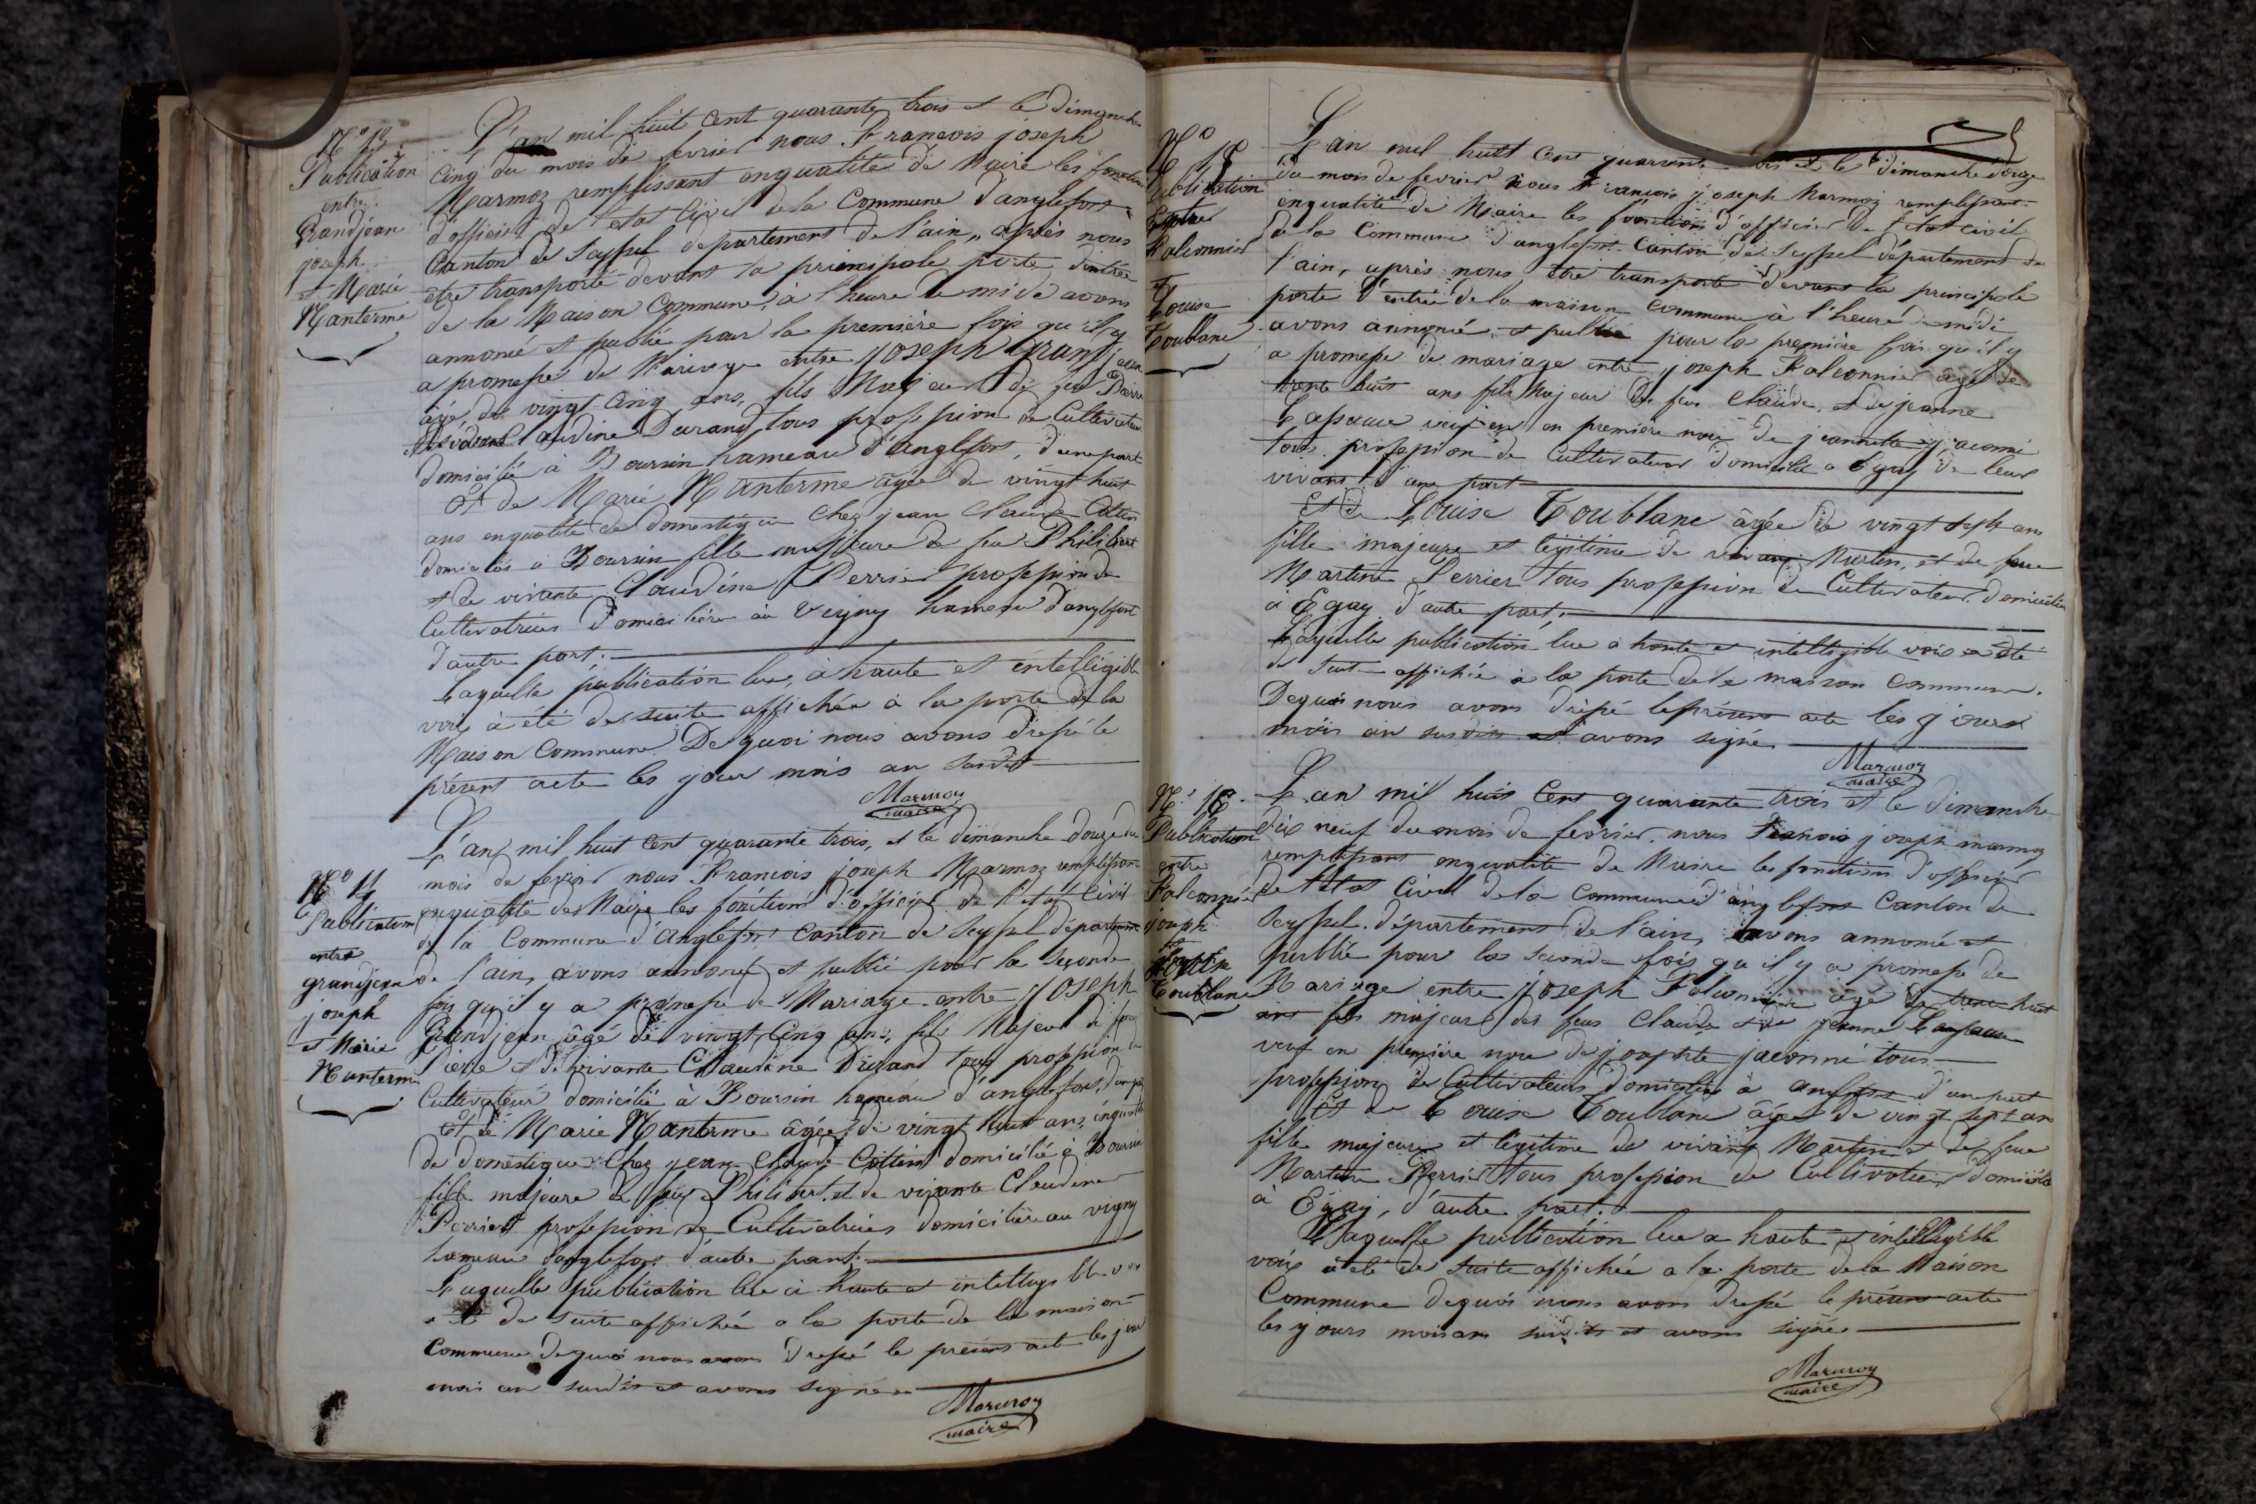 Publication
entre
Grandjean
joseph
et Marie
Manterme
L'an mil huit cent quarante trois et le dimanche
cinq du mois de fevrier nous Francois joseph
Marmoz remplissant enqualité de Maire les fonctions
d'officier de l'etat Civil de la Commune d'anglefort
Canton de Seyssel departement de l'ain, après nous
etre transporté devant la principale porte d'entrée
de la Maison Commune, à l'heure de midi avons
annoncé et publié pour la premiere fois qu'il y
a promesse de Mariage entre joseph Grandjean
agé de vingt cinq ans, fils Majeur de feu Pierre
Claudine Durand tous profession de Cultivateur
domicilié à Boursin hameau d'anglefort, d'une part
Et de Marie Manterme agée de vingt huit
ans enqualité de domestique chez jean Claude Cottin
domiciliés à Boursin fille majeure de feu Philibert
et de vivante Claudine Perrier profession de
Cultivatrices domicilière au Vigny hameau d'anglefort
d'autre part.
Laquelle publication lue à haute et intelligible
voix à été de suite affichée à la porte de la
Maison Commune De quoi nous avons dressé le
présent acte les jour mois an susdit
Marmoz
maire
N° 14
Publication
entre
grandjean
joseph
et Marie
Manterme
L'an mil huit cent quarante trois, et le dimanche douze du
mois de fevrier nous Francois joseph Marmoz remplissant
enqualité de Maire les fonctions d'officier de l'etat Civil
de la Commune d'Anglefort canton de Seyssel département
de l'ain, avons annoncé et publié pour la seconde
fois qu'il y a promesse de Mariage entre joseph
Grandjean agé de vingt cinq ans, fils Majeur de feu
Pierre et de vivante Claudine Durand tous profession de
Cultivateur domicilié à Boursin hameau d'anglefort, d'une part
Et de Marie Manterme âgée de vingt huit ans, enqualité
de domestique chez jean Claude Cottin domicilié à Boursin
fille majeure de feu Philibert et de vivante Claudine
Perrier profession de Cultivatrices domicilière au vigny
hameau d'anglefort d'autre part.
Laquelle publication lue à haute et intelligible voix
a été de suite affichée a la porte de la maison
Commune de quoi nous avons dressé le présent acte les jour
mois an susdits et avons signé
Marmoz
maire
N° 15
Publication
Entre
Falconnier
Louise
Toublanc
L'an mil huit cent quarante trois et le dimanche douze
du mois de fevrier nous Francois joseph Marmoz remplissant
enqualité de Maire les fonctions d'officier de l'etat civil
de la Commune d'anglefort Canton de Seyssel département de
l'ain, après nous être transporté devant la principale
porte d'entrée de la maison commune à l'heure de midi
avons annoncé et publié pour la première fois qu'il y
a promesse de mariage entre joseph Falconnier agé de
trente huit ans fils Majeur de feu Claude et de jeanne
veuf en première noce de jeannette jaconné
tous profession de Cultivateur domicilié a Egay de leur
vivant d'une part
Et de Louise Toublanc âgée de vingt sept ans
fille majeure et légitime de vivant Martin, et de feue
Martine Perrier tous profession de Cultivateur domiciliés
à Egay d'autre part,
Laquelle publication lue a haute et intelligible voix a été
de suite affichée à la porte de la maison Commune.
Dequoi nous avons dressé le présent acte les jours
mois an susdits et avons signé
Marmoz
maire
N° 16
Publication
entre
Falconnier
joseph
et
Louise
Toublanc
L'an mil huit cent quarante trois et le dimanche
dix neuf du mois de fevrier, nous Francois joseph marmoz
remplissant enqualité de Maire les fonctions d'officier
de l'etat Civil de la Commune d'anglefort Canton de
Seyssel département de l'ain, avons annoncé et
publié pour la seconde fois qu'il y a promesse de
Mariage entre joseph Falconnier agé de trente huit
ans fils majeur des feus Claude et de jeanne
veuf en première noce de josephte jaconné tous
profession de Cultivateurs domiciliés à anglefort d'une part
Et de Louise Toublanc âgée de vingt sept ans
fille majeure et légitime de vivant Martin et de feue
Martine Perrier tous profession de Cultivateur domiciliés
à Egay, d'autre part.
Laquelle publication lue a haute et intelligible
voix a été de suite affichée a la porte de la Maison
Commune dequoi nous avons dressé le présent acte
les jours mois an susdits et avons signé
Marmoz
maire